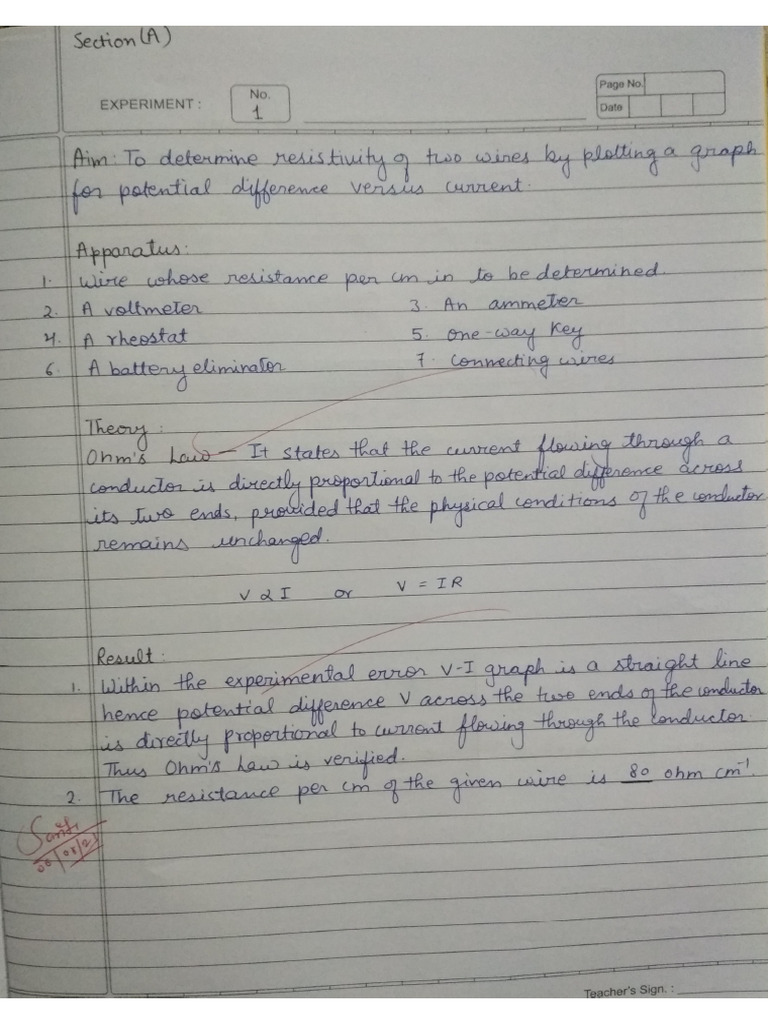 Section (A)
EXPERIMENT : No. 1
Page No.
Date
Aim: To determine resistivity of two wires by plotting a graph
for potential difference versus current.
Apparatus:
1. Wire whose resistance per cm in to be determined.
2. A voltmeter 3. An ammeter
4. A rheostat 5. One-way key
6. A battery eliminator 7. Connecting wires
Theory:
Ohm's Law - It states that the current flowing through a
conductor is directly proportional to the potential difference across
its two ends, provided that the physical conditions of the conductor
remains unchanged.
V α I or V = IR
Result:
1. Within the experimental error V-I graph is a straight line
hence potential difference V across the two ends of the conductor
is directly proportional to current flowing through the conductor.
Thus Ohm's Law is verified.
2. The resistance per cm of the given wire is 80 ohm cm⁻¹.
Teacher's Sign. :